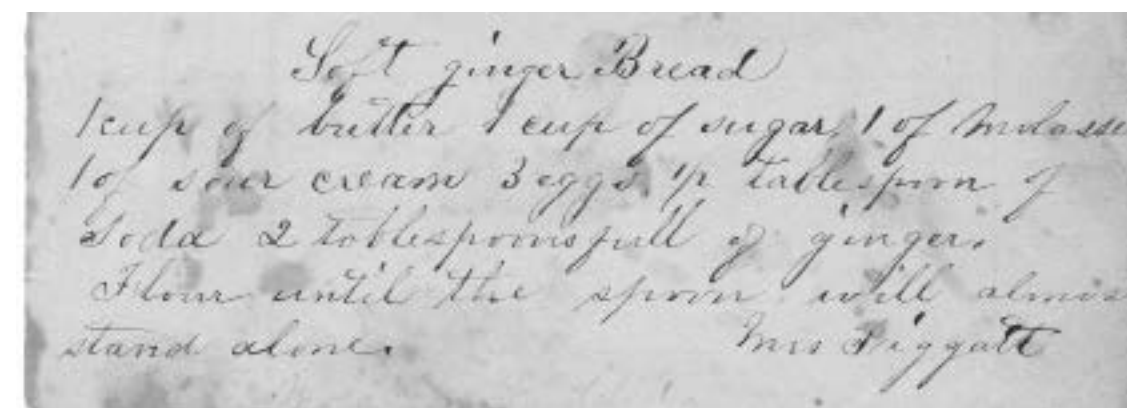 Soft ginger Bread
1 cup of butter 1 cup of sugar, 1 of Molasse
1 of sour cream 3 eggs, 1/2 tablespoon of
Soda 2 tablespoonsfull of ginger.
Flour until the spoon will almos
stand alone.    Mrs Piggatt